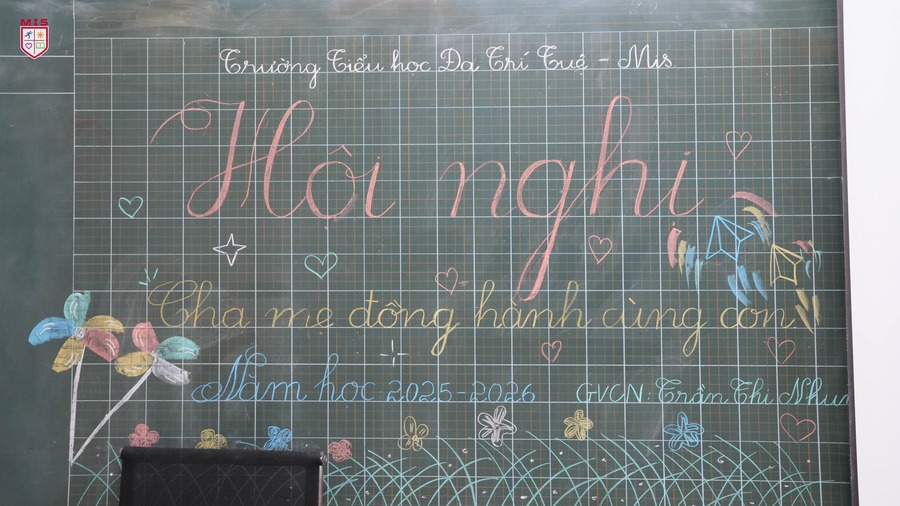 MIS
Trường Tiểu học Đa Trí Tuệ - Mis
Hội nghị
Cha mẹ đồng hành cùng con
Năm học: 2025-2026
GVCN: Trần Thị